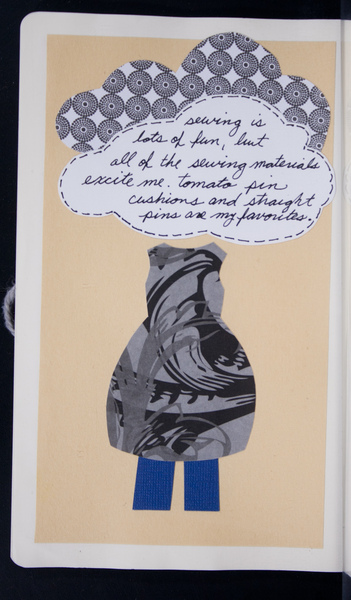 sewing is
lots of fun, but
all of the sewing materials
excite me. tomato pin
cushions and straight
pins are my favorites.